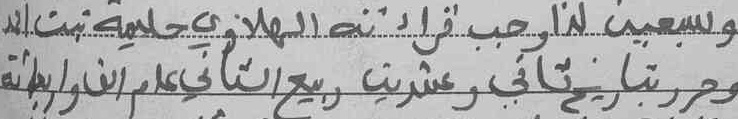 وسبعين لذا وجب قراءته الهلاوي حليمة بنت احمد
وحرر بتاريخ ثاني وعشرين ربيع الثاني عام الف واربعمائة